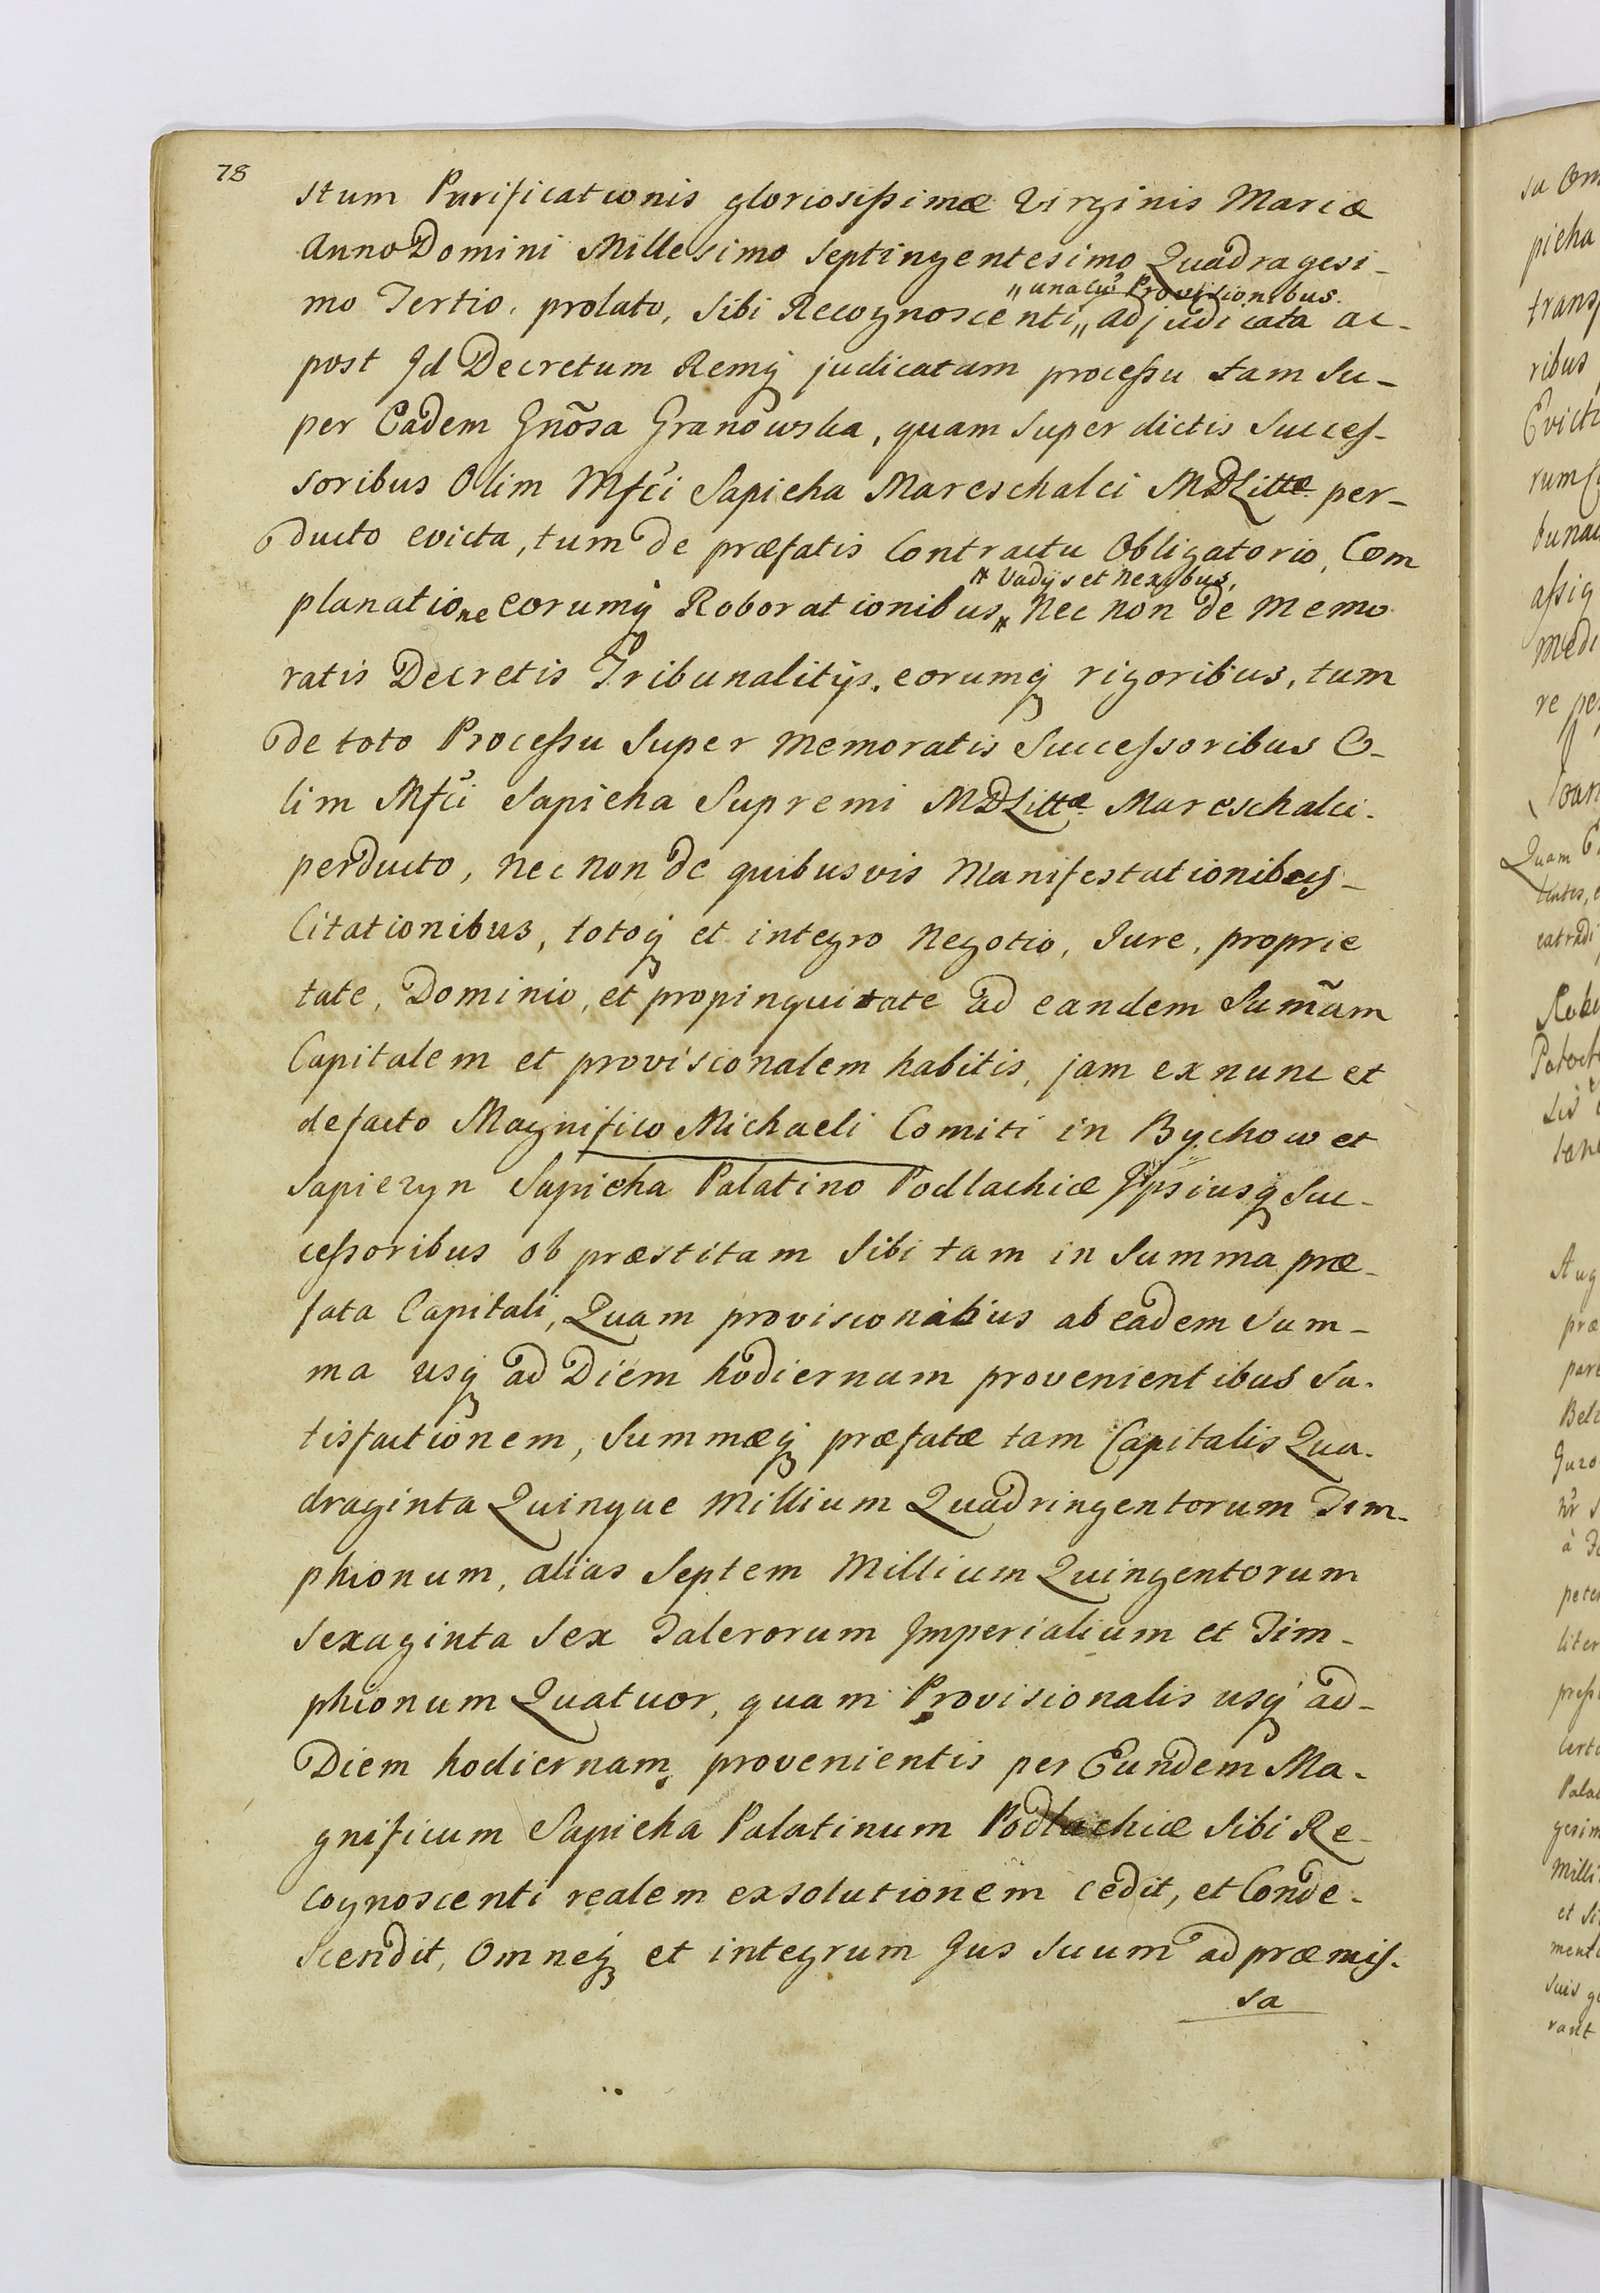 78
stum Purificationis gloriosissimæ Virginis Mariæ
Anno Domini Millesimo Septingentesimo Quadragesi-
„unacu᷃ Provisionibus.
mo Tertio, prolato, Sibi Recognoscenti„ adjudicata ac-
post Id Decretum Remq́ judicatam processu tam Su-
per Eadem Gnõsa Granowska, quam Super dictis Succes-
soribus Olim Mfci Sapieha Mareschalci MDLittæ per-
ducto evicta, tum de præfatis Contractu Obligatorio, Com
# Vadijs et Nexibus,
planatione eorumq́ Roborationibus # Nec non de Memo
ratis Decretis Tribunalitijs, eorumq́ rigoribus, tum
de toto Processu Super Memoratis Successoribus O-
lim Mfci Sapieha Supremi MDLittæ Mareschalci.
perducto, Nec non de quibusvis Manifestationibus-
Citationibus, totoq́ et integro Negotio, Jure, proprie
tate, Dominio, et propinquitate ad eandem Sum̃am
Capitalem et provisionalem habitis, jam ex nunc et
de facto Magnifico Michaeli Comiti in Bychow et
Sapiezyn Sapieha Palatino Podlachiæ Ipsiusq́ Suc-
cessoribus ob præstitam Sibi tam in Summa præ-
fata Capitali, Quam provisionibus ab eadem Sum-
ma usq́ ad Diem hodiernum provenientibus Sa-
tisfactionem, Summæq́ præfatæ tam Capitalis Qua-
draginta Quinque Millium Quadringentorum Tim-
phionum, alias Septem Millium Quingentorum
Sexaginta Sex Talerorum Imperialium et Tim-
phionum Quatuor, quam Provisionalis usq́ ad-
Diem hodiernam provenientis per Eundem Ma-
gnificum Sapieha Palatinum Podlachiæ Sibi Re-
cognoscenti realem exsolutionem cedit, et Conde-
scendit, Omneq́ et integrum Jus Suum ad præmis-
sa